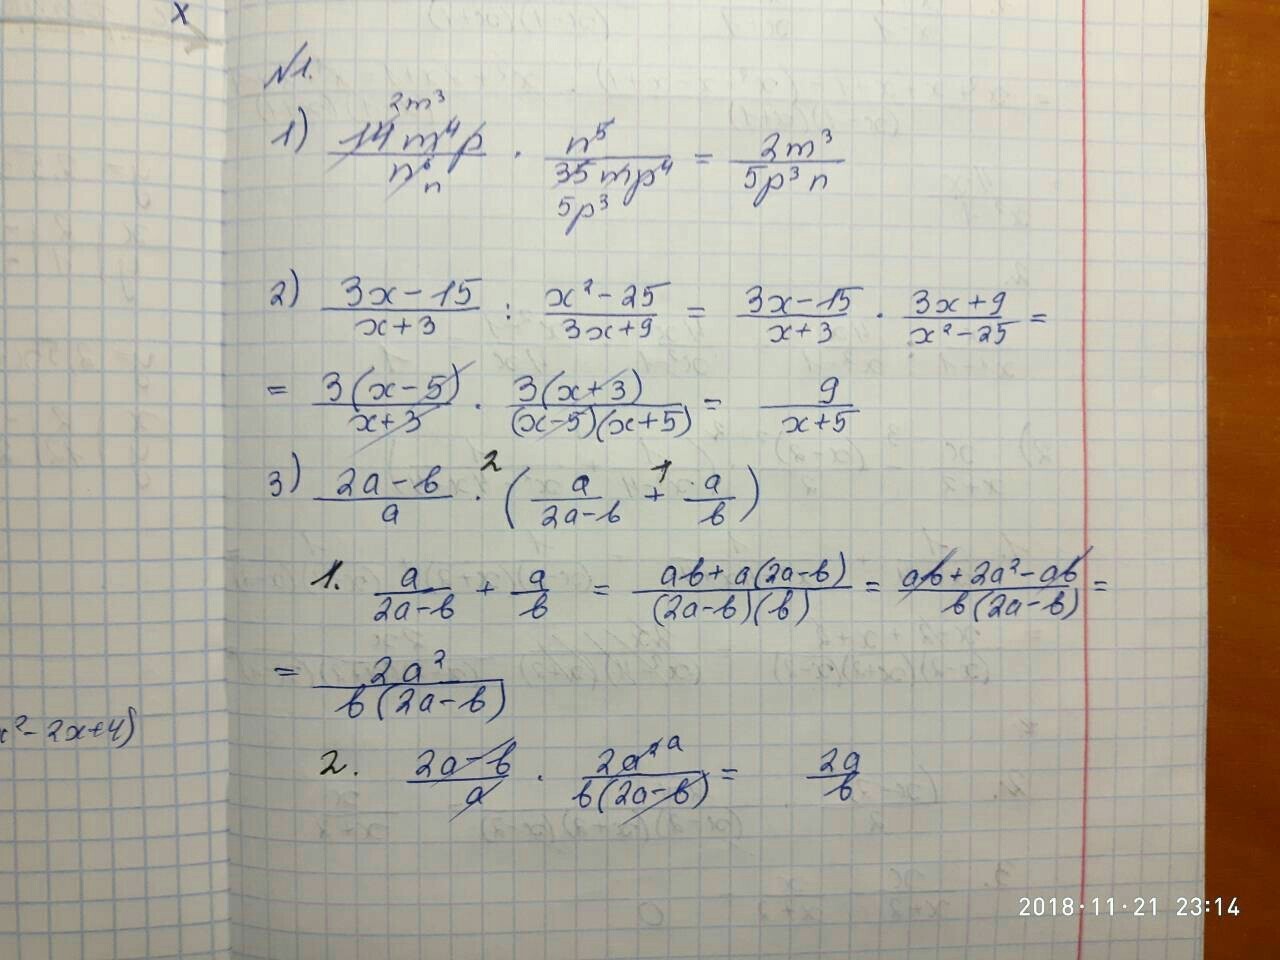 x
№1.
1) 14m⁴p/n⁶ · n⁵/35mp⁴ = 2m³/5p³n
2m³
n
5p³
2) 3x-15/x+3 : x²-25/3x+9 = 3x-15/x+3 · 3x+9/x²-25 =
= 3(x-5)/x+3 · 3(x+3)/(x-5)(x+5) = 9/x+5
2 1
3) 2a-b/a · (a/2a-b + a/b)
1. a/2a-b + a/b = ab+a(2a-b)/(2a-b)(b) = ab+2a²-ab/b(2a-b) =
= 2a²/b(2a-b)
x²-2x+4)
2. 2a-b/a · 2a²/b(2a-b) = 2a/b
a
2018·11·21 23:14